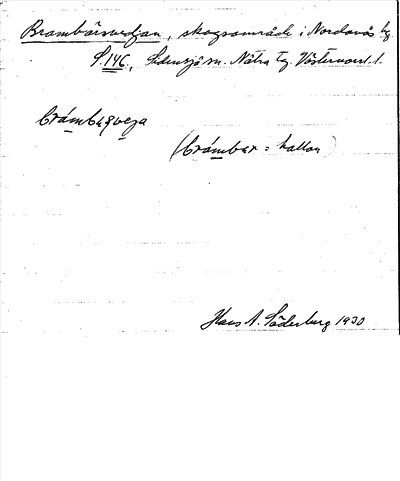 Brambärsvedjan, skogsområde i Nordanås by
S.146, Sidensjö sn. Nätra tg. Västernorrl. l.
(brámbær = hallon)
Hans A. Söderberg 1930